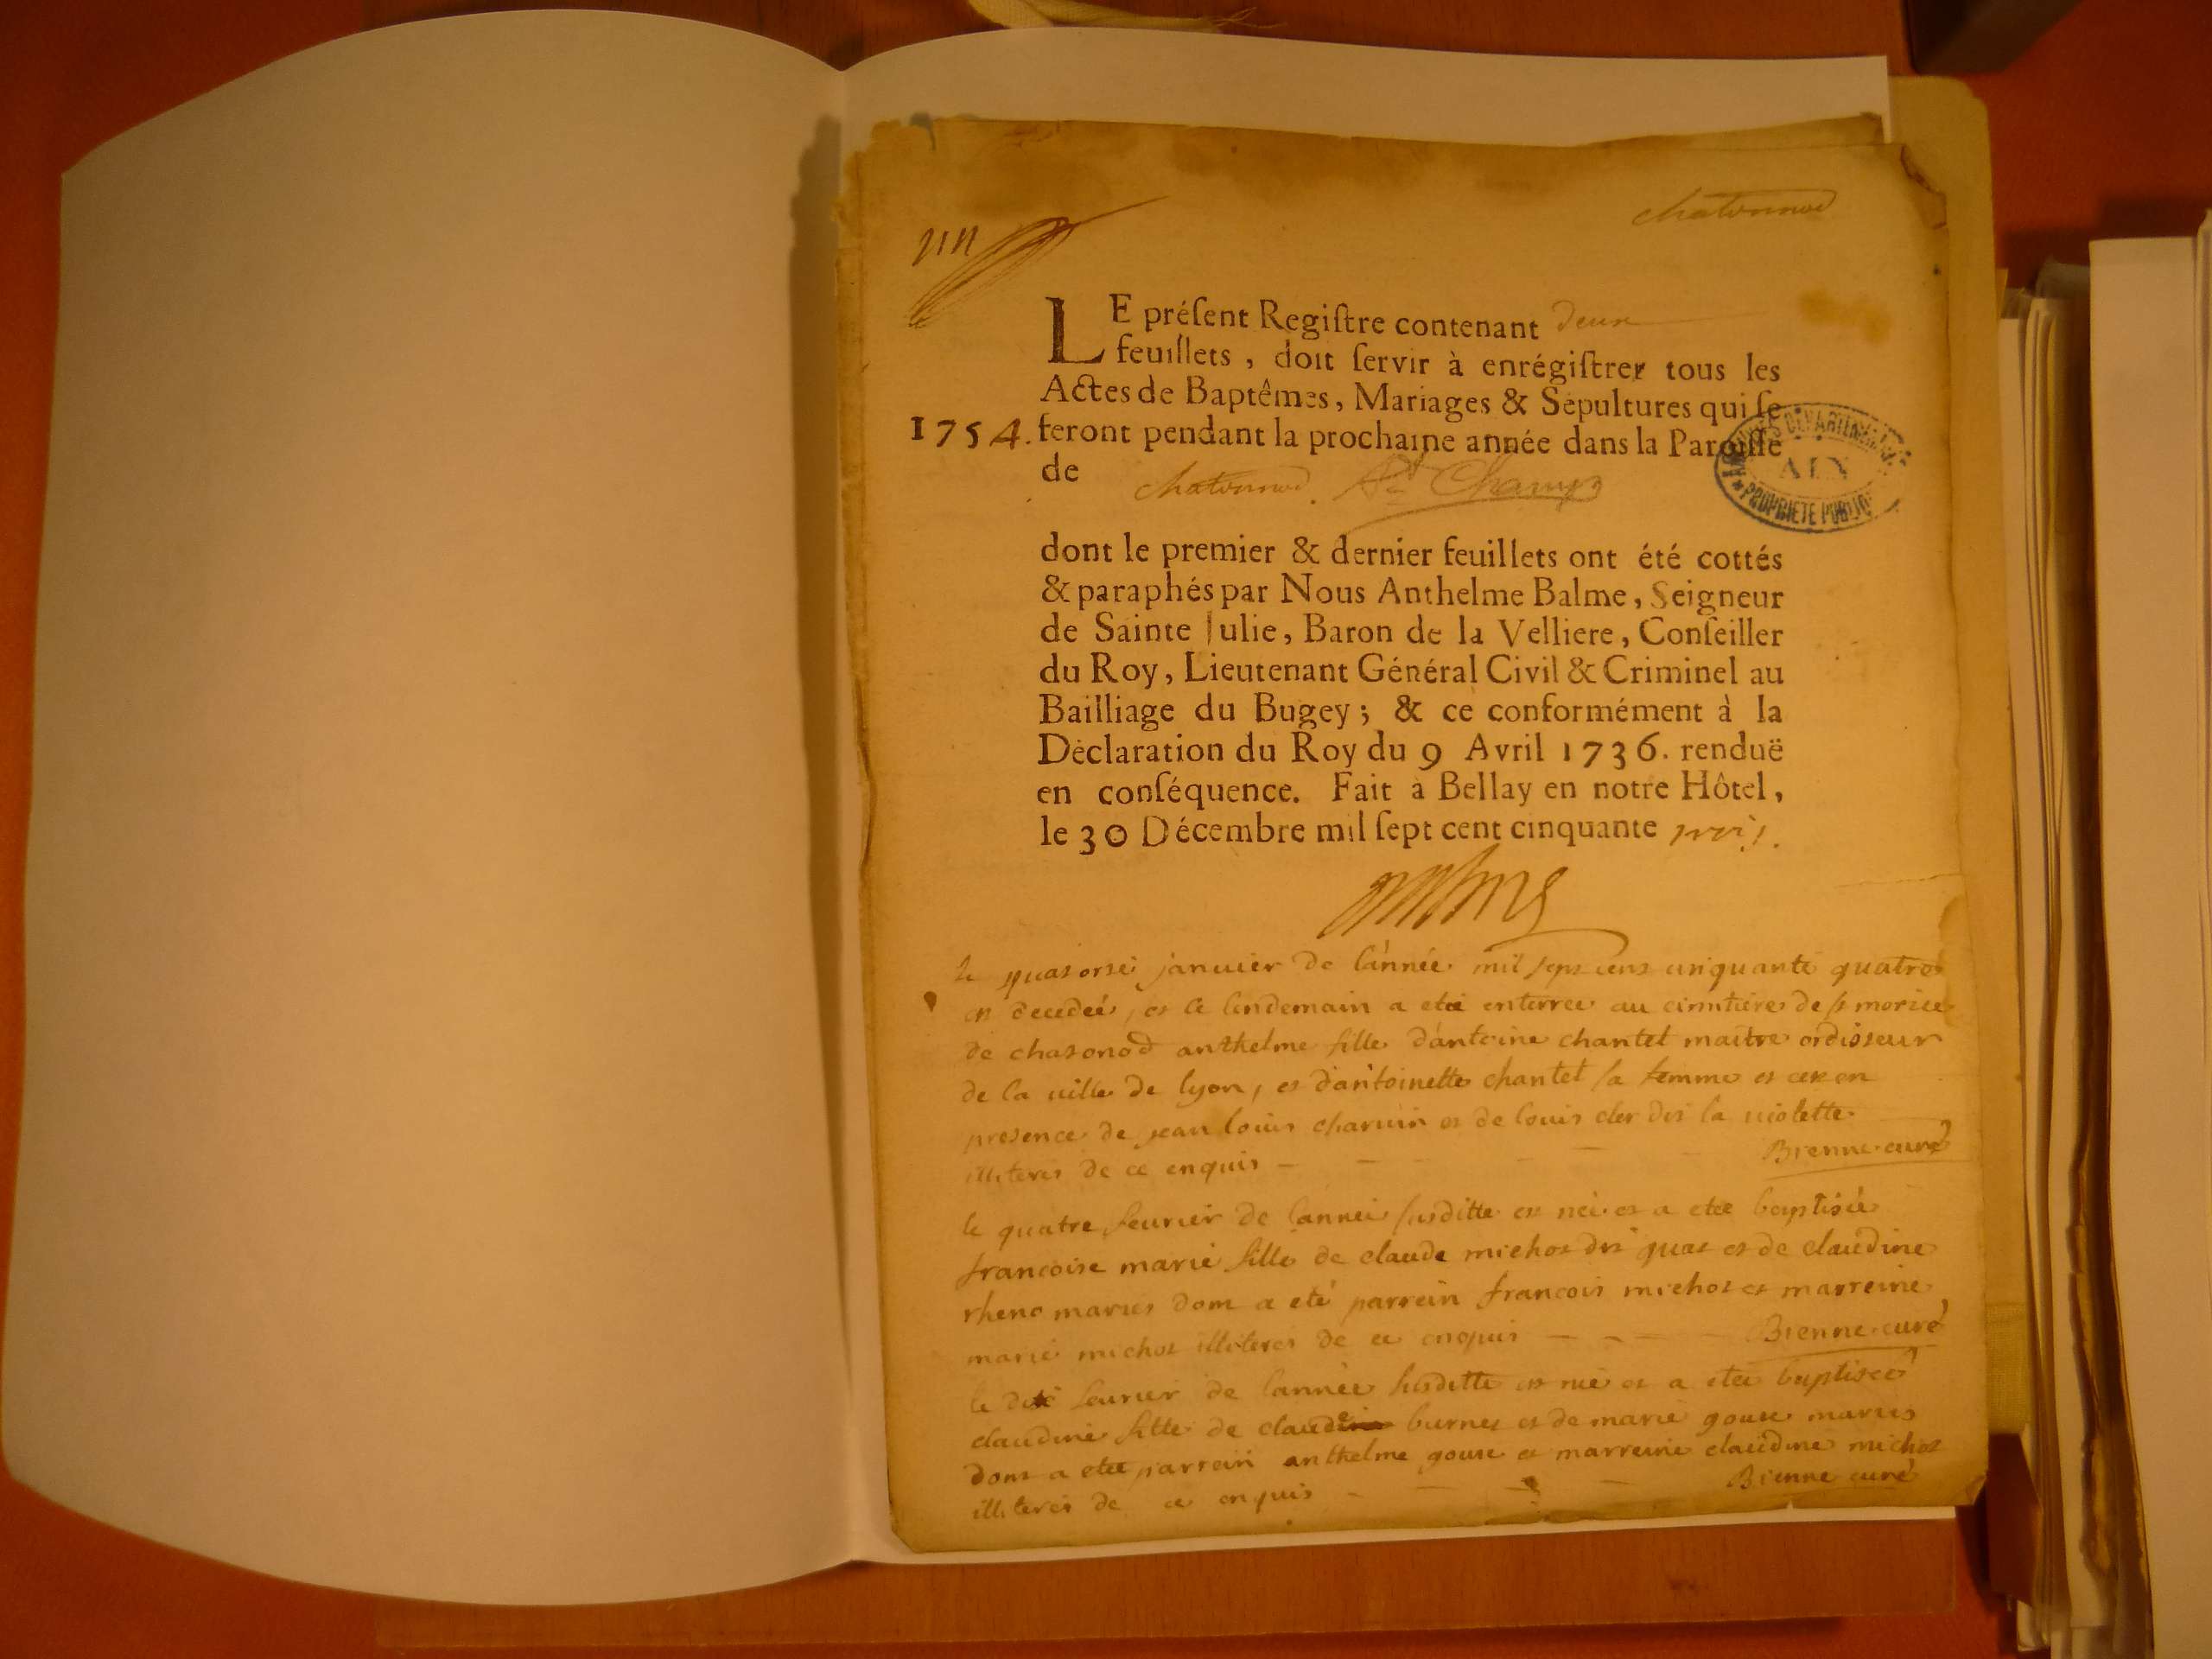 chatonnod
un
LE préſent Regiſtre contenant deux
feuillets , doit ſervir à enrégiſtrer tous les
Actes de Baptêmes, Mariages & Sépultures qui ſe
1754. feront pendant la prochaine année dans la Paroiſſe
de chatonnod. St Champ
ARCHIVES DÉPARTEMENTALES
AIN
PROPRIETE PUBLIQUE
dont le premier & dernier feuillets ont été cottés
& paraphés par Nous Anthelme Balme, Seigneur
de Sainte Julie, Baron de la Velliere, Conſeiller
du Roy, Lieutenant Général Civil & Criminel au
Bailliage du Bugey ; & ce conformément à la
Déclaration du Roy du 9 Avril 1736. renduë
en conſéquence. Fait à Bellay en notre Hôtel,
le 30 Décembre mil ſept cent cinquante trois.
Balme
le quatorze janvier de l'année mil sept cent cinquante quatre
est decedeé, et le lendemain a eteé enterree au cimitiere de st morice
de chatonod anthelme fille d'antoine chantel maitre ordisseur
de la ville de lyon, et d'antoinette chantel sa femme et ce en
presence de jean louis charvin et de louis cler dit la violette
illiteres de ce enquis - - - - - Bienne curé
le quatre fevrier de l'anneé susditte est neé et a eteé baptisée
francoise marie fille de claude michot dit quat et de claudine
rheno mariés dont a eté parrein francois michot et marreine
marie michot illiteres de ce enquis - - - - Bienne curé
le fevrier de l'anneé susditte est neé et a eteé baptiseé
claudine fille de claude burnet et de marie gouse mariés
dont a eteé parrein anthelme gouse et marreine claudine michot
illiteres de ce enquis - - - - Bienne curé